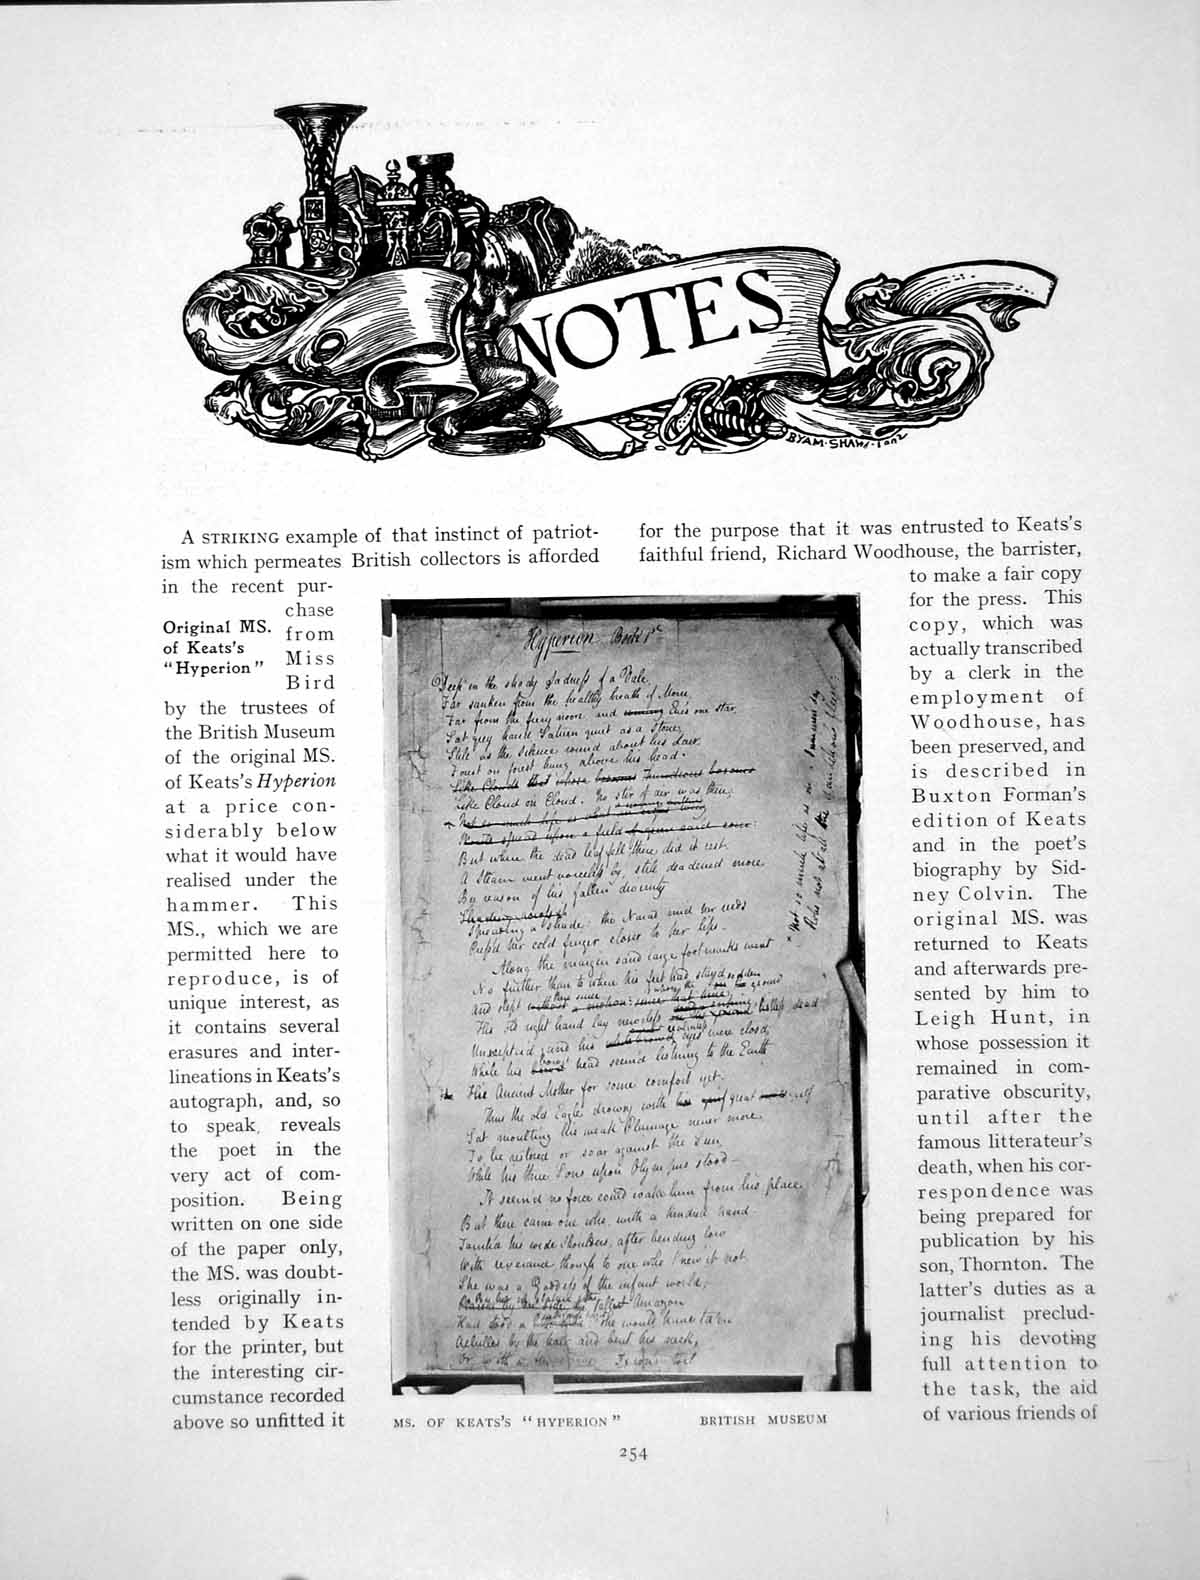 NOTES
BYAM·SHAW·1902
A STRIKING example of that instinct of patriot-
ism which permeates British collectors is afforded
in the recent pur-
Original MS.
of Keats's
"Hyperion"
chase
from
Miss
Bird
by the trustees of
the British Museum
of the original MS.
of Keats's Hyperion
at a price con-
siderably below
what it would have
realised under the
hammer. This
MS., which we are
permitted here to
reproduce, is of
unique interest, as
it contains several
erasures and inter-
lineations in Keats's
autograph, and, so
to speak, reveals
the poet in the
very act of com-
position. Being
written on one side
of the paper only,
the MS. was doubt-
less originally in-
tended by Keats
for the printer, but
the interesting cir-
cumstance recorded
above so unfitted it
Hyperion Book 1st
Deep in the shady sadness of a Vale,
Far sunken from the healthy breath of Morn,
Far from the fiery noon and Eve's one star,
Sat grey hair'd Saturn quiet as a Stone,
Still as the silence round about his Lair.
Forest on forest hung above his head
Like Cloud on Cloud. No stir of air was there;
But where the dead leaf fell there did it rest.
A Stream went voiceless by, still deadened more
By reason of his fallen divinity
Spreading a shade: the Naiad mid her reeds
Press'd her cold finger closer to her lips.
Along the margin sand large footmarks went
No further than to where his feet had stay'd
And slept
His old right hand lay nerveless
Unsceptr'd; and his eyes were clos'd,
While his head seem'd listning to the Earth
His Ancient Mother for some comfort yet.
Thus the old Eagle drowsy with great
Sat moulting his weak Plumage never more
To be restored or soar against the Sun,
While his three Sons upon Olympus stood—
It seem'd no force could wake him from his place
But there came one who with a kindred hand
Touch'd his wide Shoulders, after bending low
With reverence though to one who knew it not.
She was a Goddess of the infant world;
Amazon
Had stood a she would have ta'en
Achilles by the hair and bent his neck,
MS. OF KEATS'S "HYPERION" BRITISH MUSEUM
for the purpose that it was entrusted to Keats's
faithful friend, Richard Woodhouse, the barrister,
to make a fair copy
for the press. This
copy, which was
actually transcribed
by a clerk in the
employment of
Woodhouse, has
been preserved, and
is described in
Buxton Forman's
edition of Keats
and in the poet's
biography by Sid-
ney Colvin. The
original MS. was
returned to Keats
and afterwards pre-
sented by him to
Leigh Hunt, in
whose possession it
remained in com-
parative obscurity,
until after the
famous litterateur's
death, when his cor-
respondence was
being prepared for
publication by his
son, Thornton. The
latter's duties as a
journalist preclud-
ing his devoting
full attention to
the task, the aid
of various friends of
254